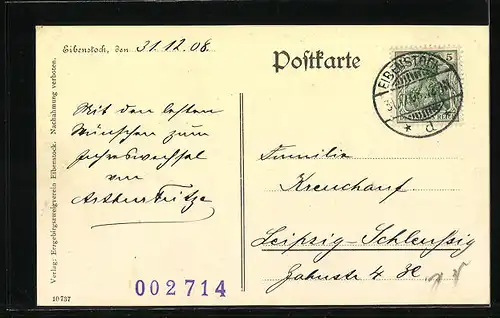 Eibenstock, den 31.12.08
Postkarte
EIBENSTOCK
5
Mit den besten
Wünschen zum
Jahreswechsel
von
Arthur Fritze
Familie
Kreuchauf
Leipzig-Schleussig
Jahnstr 4
002714
Verlag: Erzgebirgszweigverein Eibenstock. Nachahmung verboten.
10737